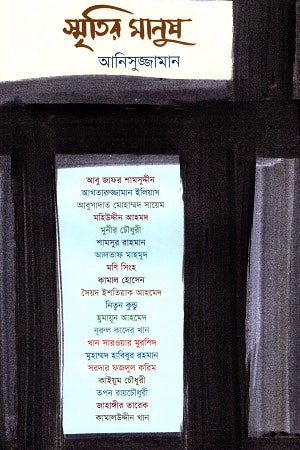 স্মৃতির মানুষ
আনিসুজ্জামান
আবু জাফর শামসুদ্দীন
আখতারুজ্জামান ইলিয়াস
আবুসাদাত মোহাম্মদ সায়েম
মহিউদ্দীন আহমদ
মুনীর চৌধুরী
শামসুর রাহমান
আলতাফ মাহমুদ
মণি সিংহ
কামাল হোসেন
সৈয়দ ইশতিয়াক আহমেদ
নিতুন কুন্ডু
হুমায়ূন আহমেদ
নূরুল কাদের খান
খান সারওয়ার মুরশিদ
মুহাম্মদ হাবিবুর রহমান
সরদার ফজলুল করিম
কাইয়ুম চৌধুরী
তপন রায়চৌধুরী
জাহাঙ্গীর তারেক
কামালউদ্দীন খান